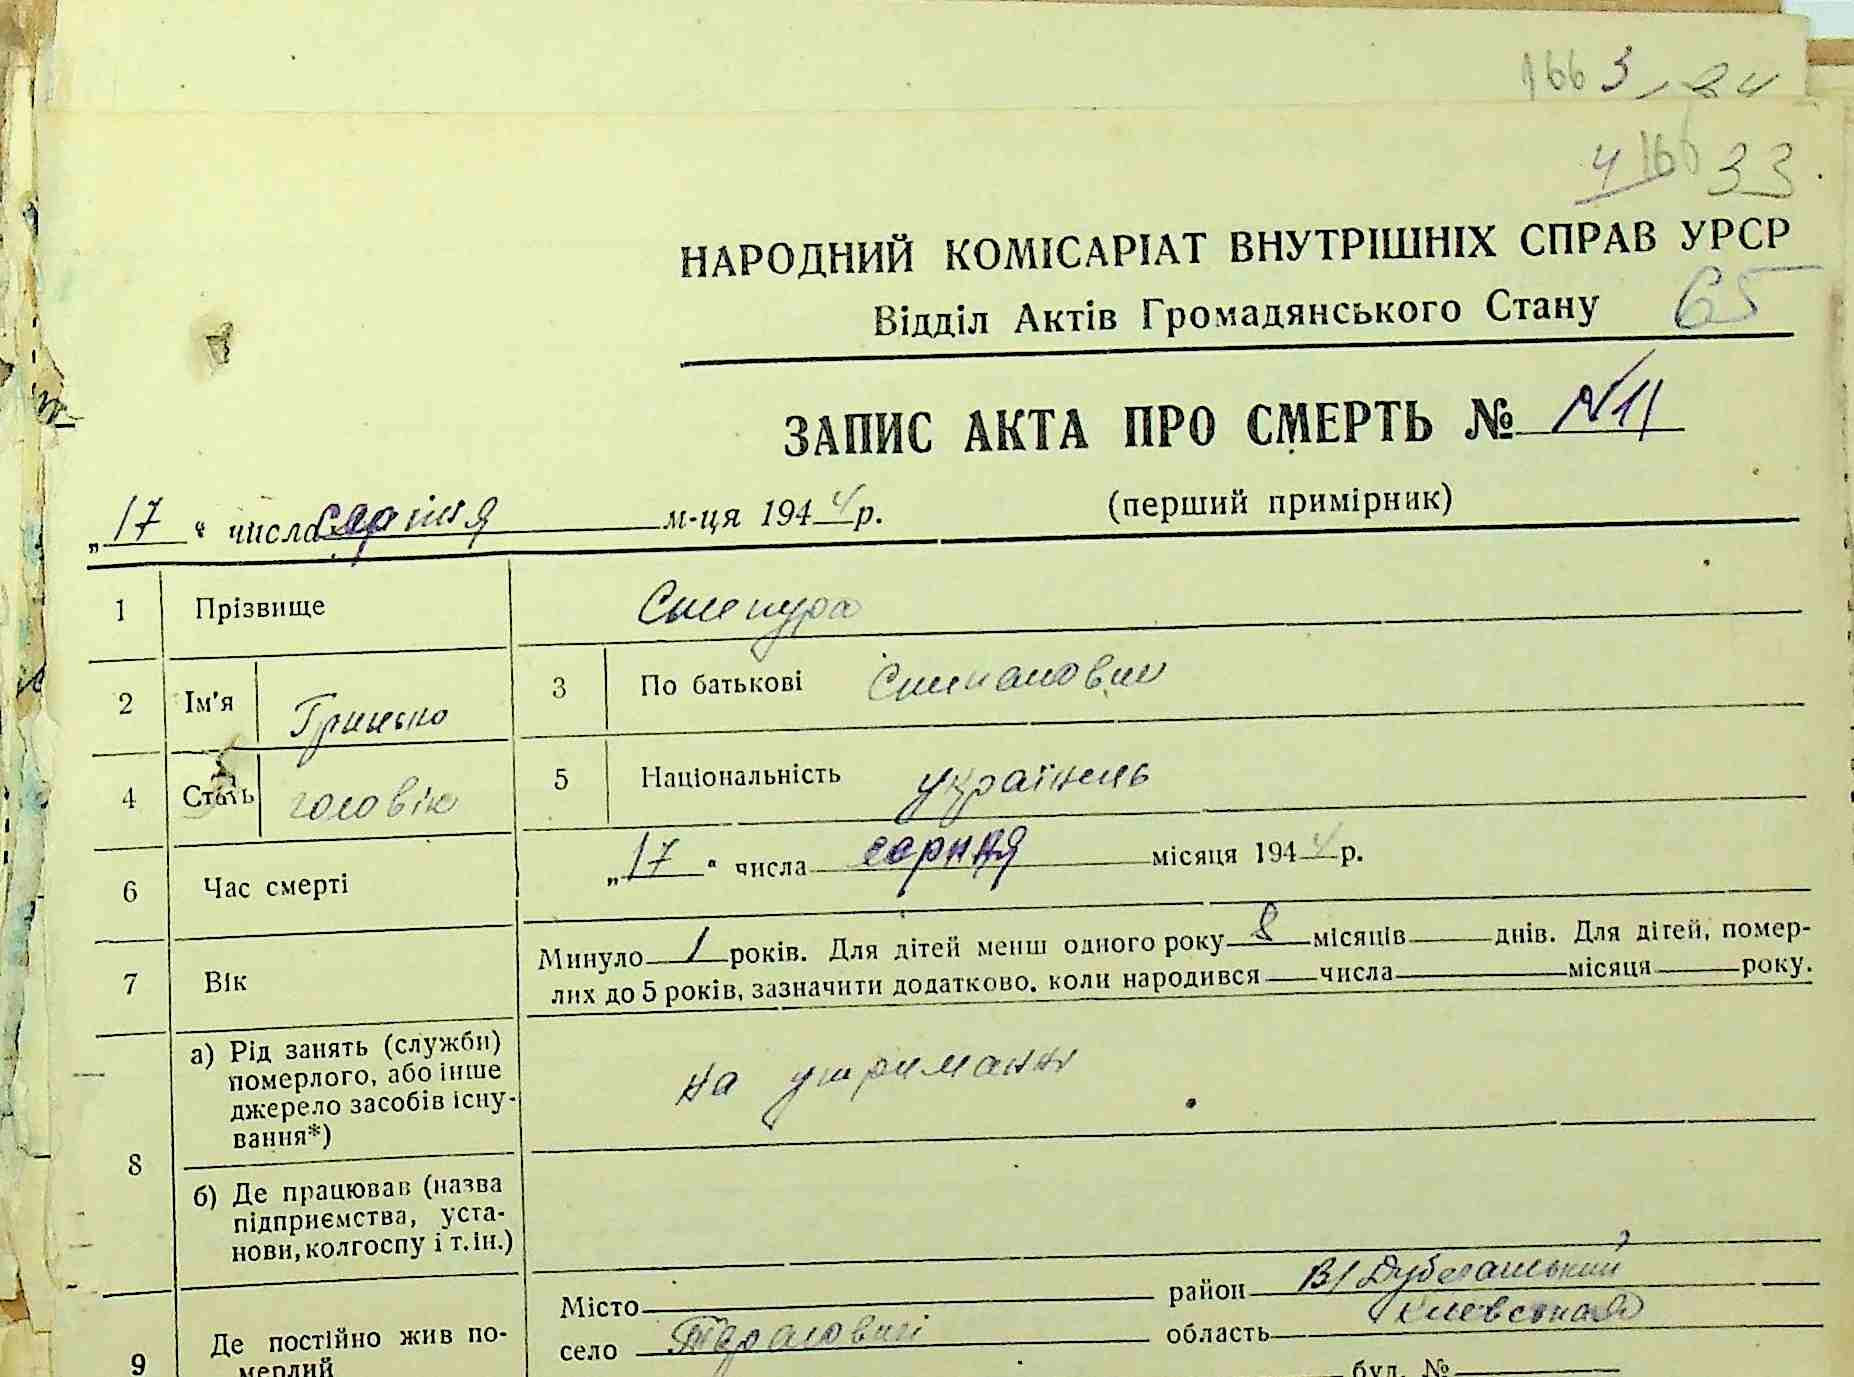 1663
33
НАРОДНИЙ КОМІСАРІАТ ВНУТРІШНІХ СПРАВ УРСР
Відділ Актів Громадянського Стану 65
ЗАПИС АКТА ПРО СМЕРТЬ № N11
„17“ числа серпня м-ця 1944 р. (перший примірник)
1 Прізвище Степура
2 Ім'я Гринько 3 По батькові Степанович
4 Стать чоловік 5 Національність українець
6 Час смерті „17“ числа серпня місяця 1944 р.
7 Вік Минуло 1 років. Для дітей менш одного року 8 місяців днів. Для дітей, помер-
лих до 5 років, зазначити додатково, коли народився числа місяця року.
8 а) Рід занять (служби)
померлого, або інше
джерело засобів існу-
вання*) на утриманні
б) Де працював (назва
підприємства, уста-
нови, колгоспу і т. ін.)
9 Де постійно жив по-
мерлий
Місто район В/Дубечанський
село Тарасовичі область Киевская
буд. №